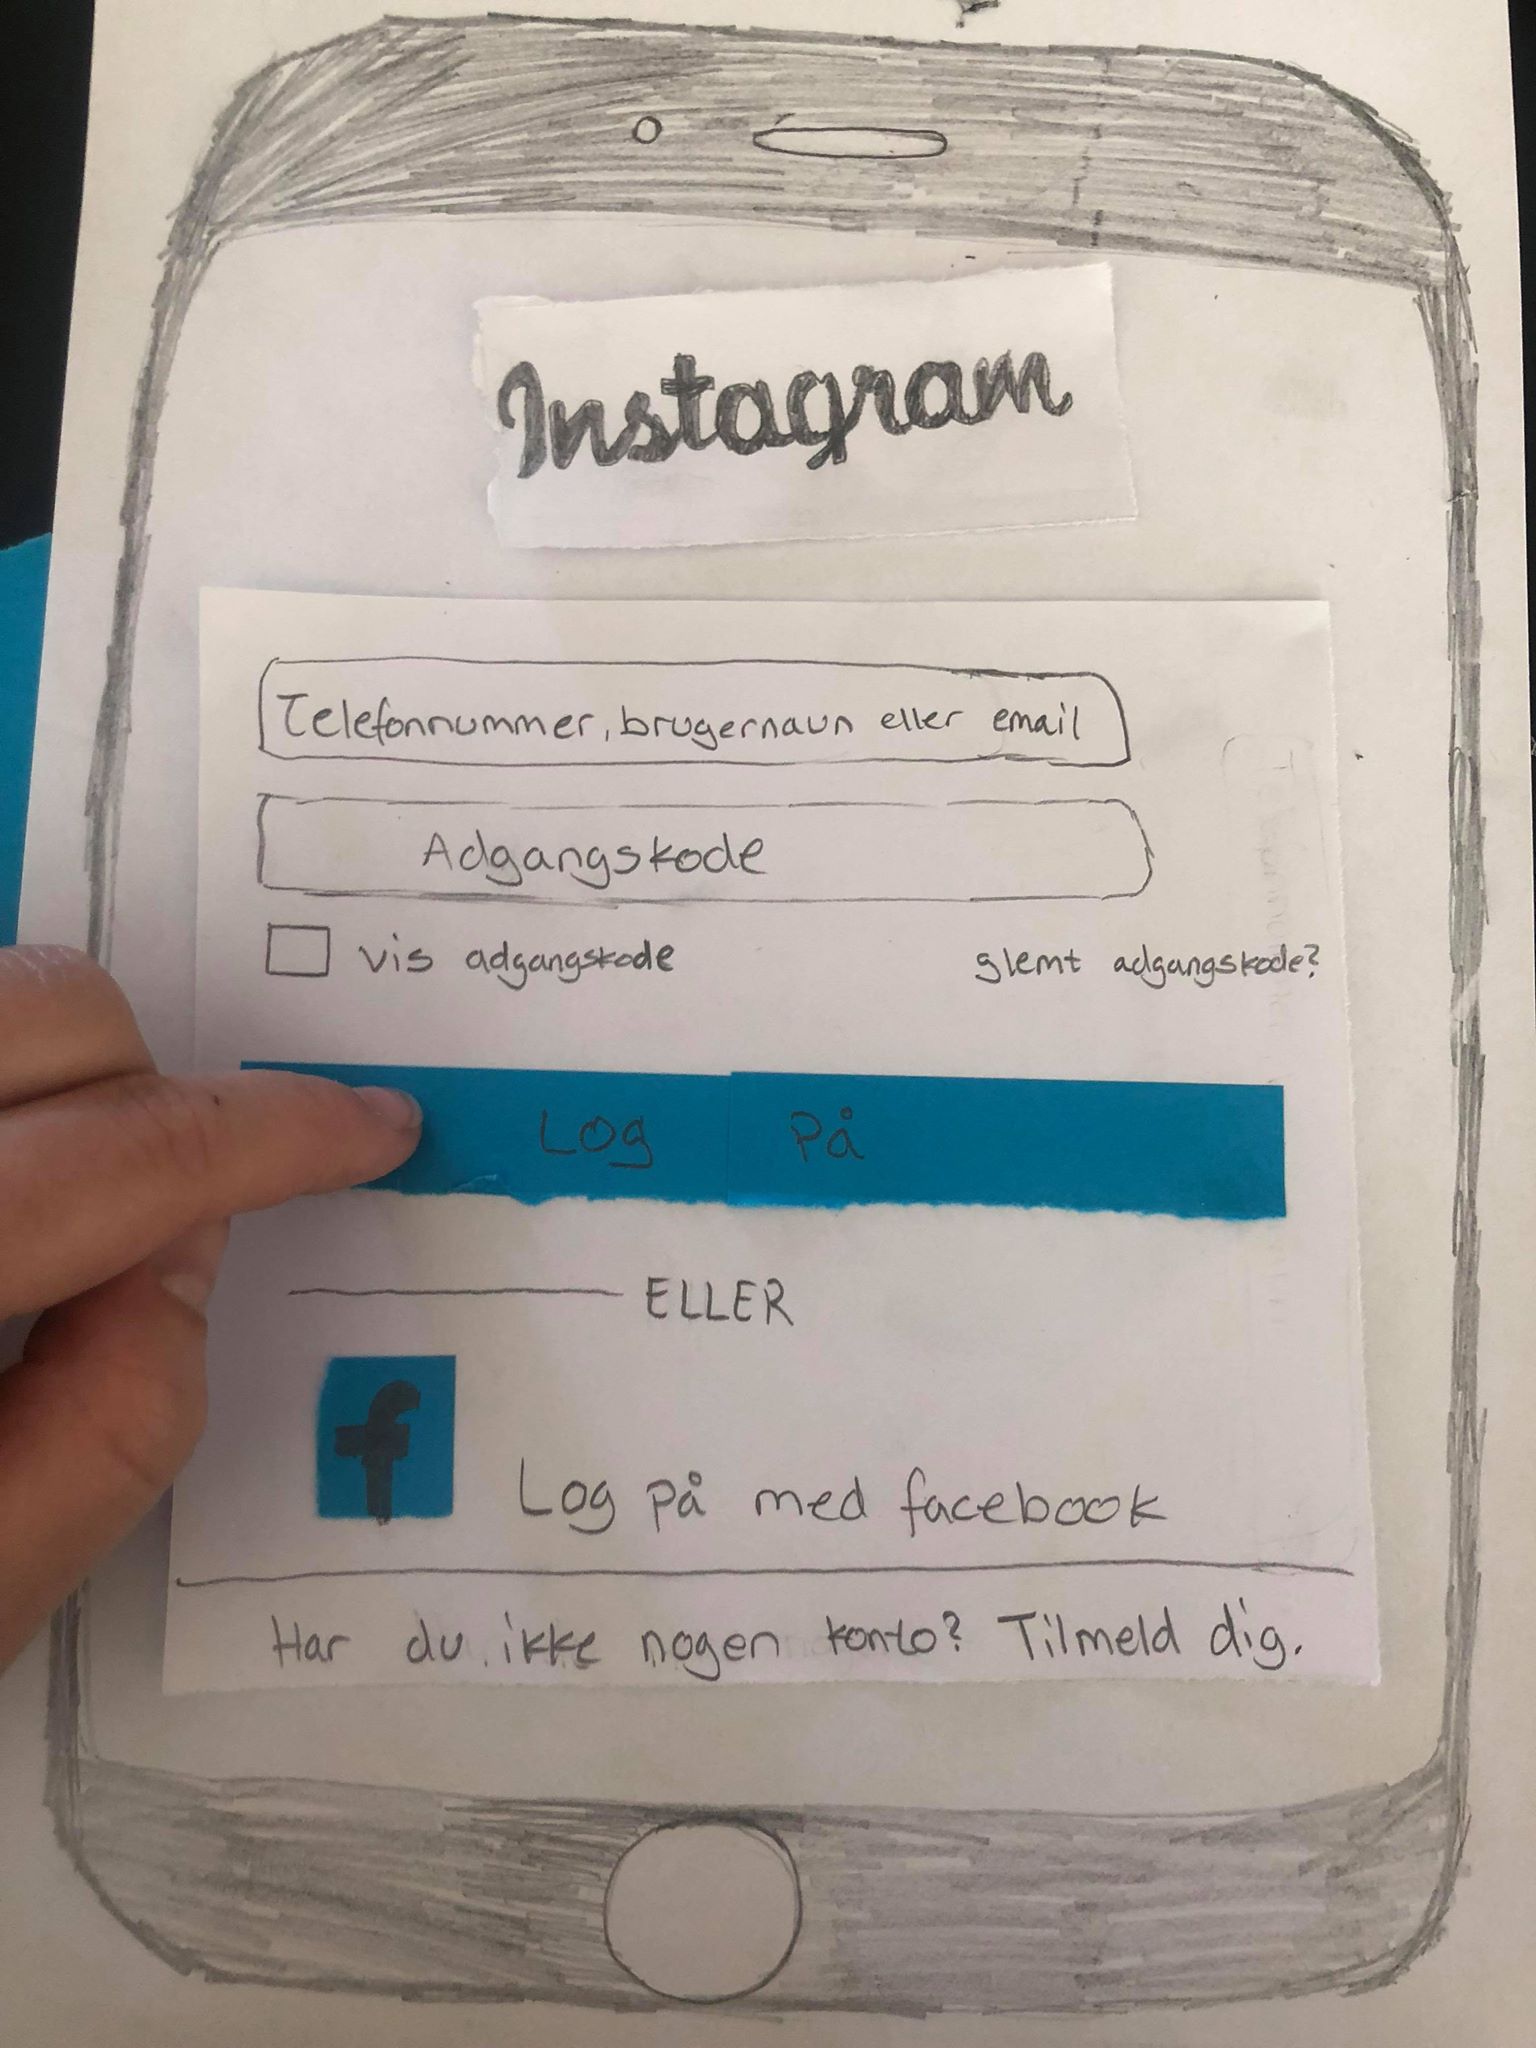 Instagram
Telefonnummer, brugernavn eller email
Adgangskode
vis adgangskode
glemt adgangskode?
Log På
ELLER
f
Log på med facebook
Har du ikke nogen konto? Tilmeld dig.